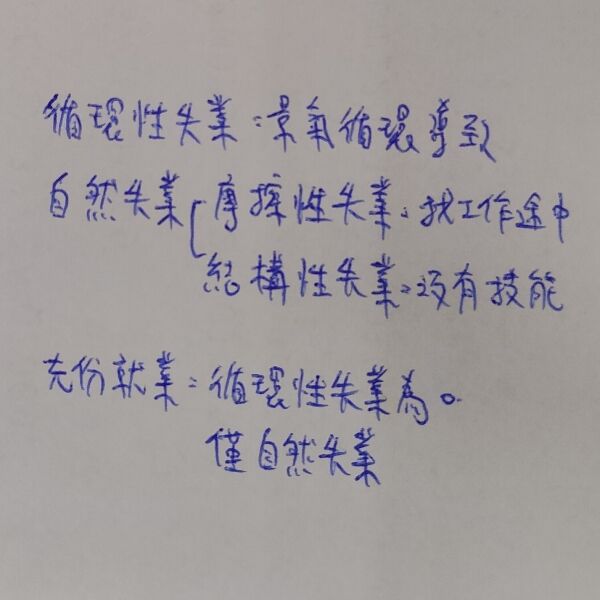 循環性失業：景氣循環導致
自然失業 摩擦性失業：找工作途中
結構性失業：沒有技能
充份就業：循環性失業為0
僅自然失業